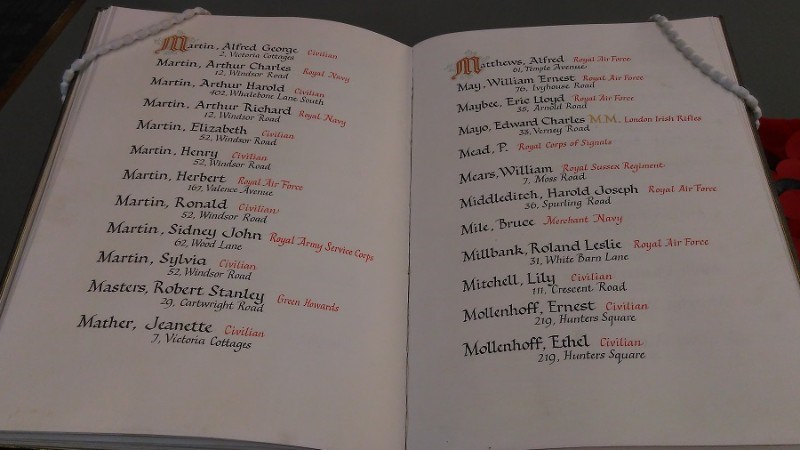 Martin, Alfred George Civilian
2, Victoria Cottages
Martin, Arthur Charles Royal Navy
12, Windsor Road
Martin, Arthur Harold Civilian
402, Whalebone Lane South
Martin, Arthur Richard Royal Navy
12, Windsor Road
Martin, Elizabeth Civilian
52, Windsor Road
Martin, Henry Civilian
52, Windsor Road
Martin, Herbert Royal Air Force
167, Valence Avenue
Martin, Ronald Civilian
52, Windsor Road
Martin, Sidney John Royal Army Service Corps
62, Wood Lane
Martin, Sylvia Civilian
52, Windsor Road
Masters, Robert Stanley Green Howards
29, Cartwright Road
Mather, Jeanette Civilian
7, Victoria Cottages
Matthews, Alfred Royal Air Force
61, Temple Avenue
May, William Ernest Royal Air Force
76, Ivyhouse Road
Maybee, Eric Lloyd Royal Air Force
38, Arnold Road
Mayo, Edward Charles M.M. London Irish Rifles
33, Verney Road
Mead, P. Royal Corps of Signals
Mears, William Royal Sussex Regiment
7, Moss Road
Middleditch, Harold Joseph Royal Air Force
36, Spurling Road
Mile, Bruce Merchant Navy
Millbank, Roland Leslie Royal Air Force
31, White Barn Lane
Mitchell, Lily Civilian
111, Crescent Road
Mollenhoff, Ernest Civilian
219, Hunters Square
Mollenhoff, Ethel Civilian
219, Hunters Square